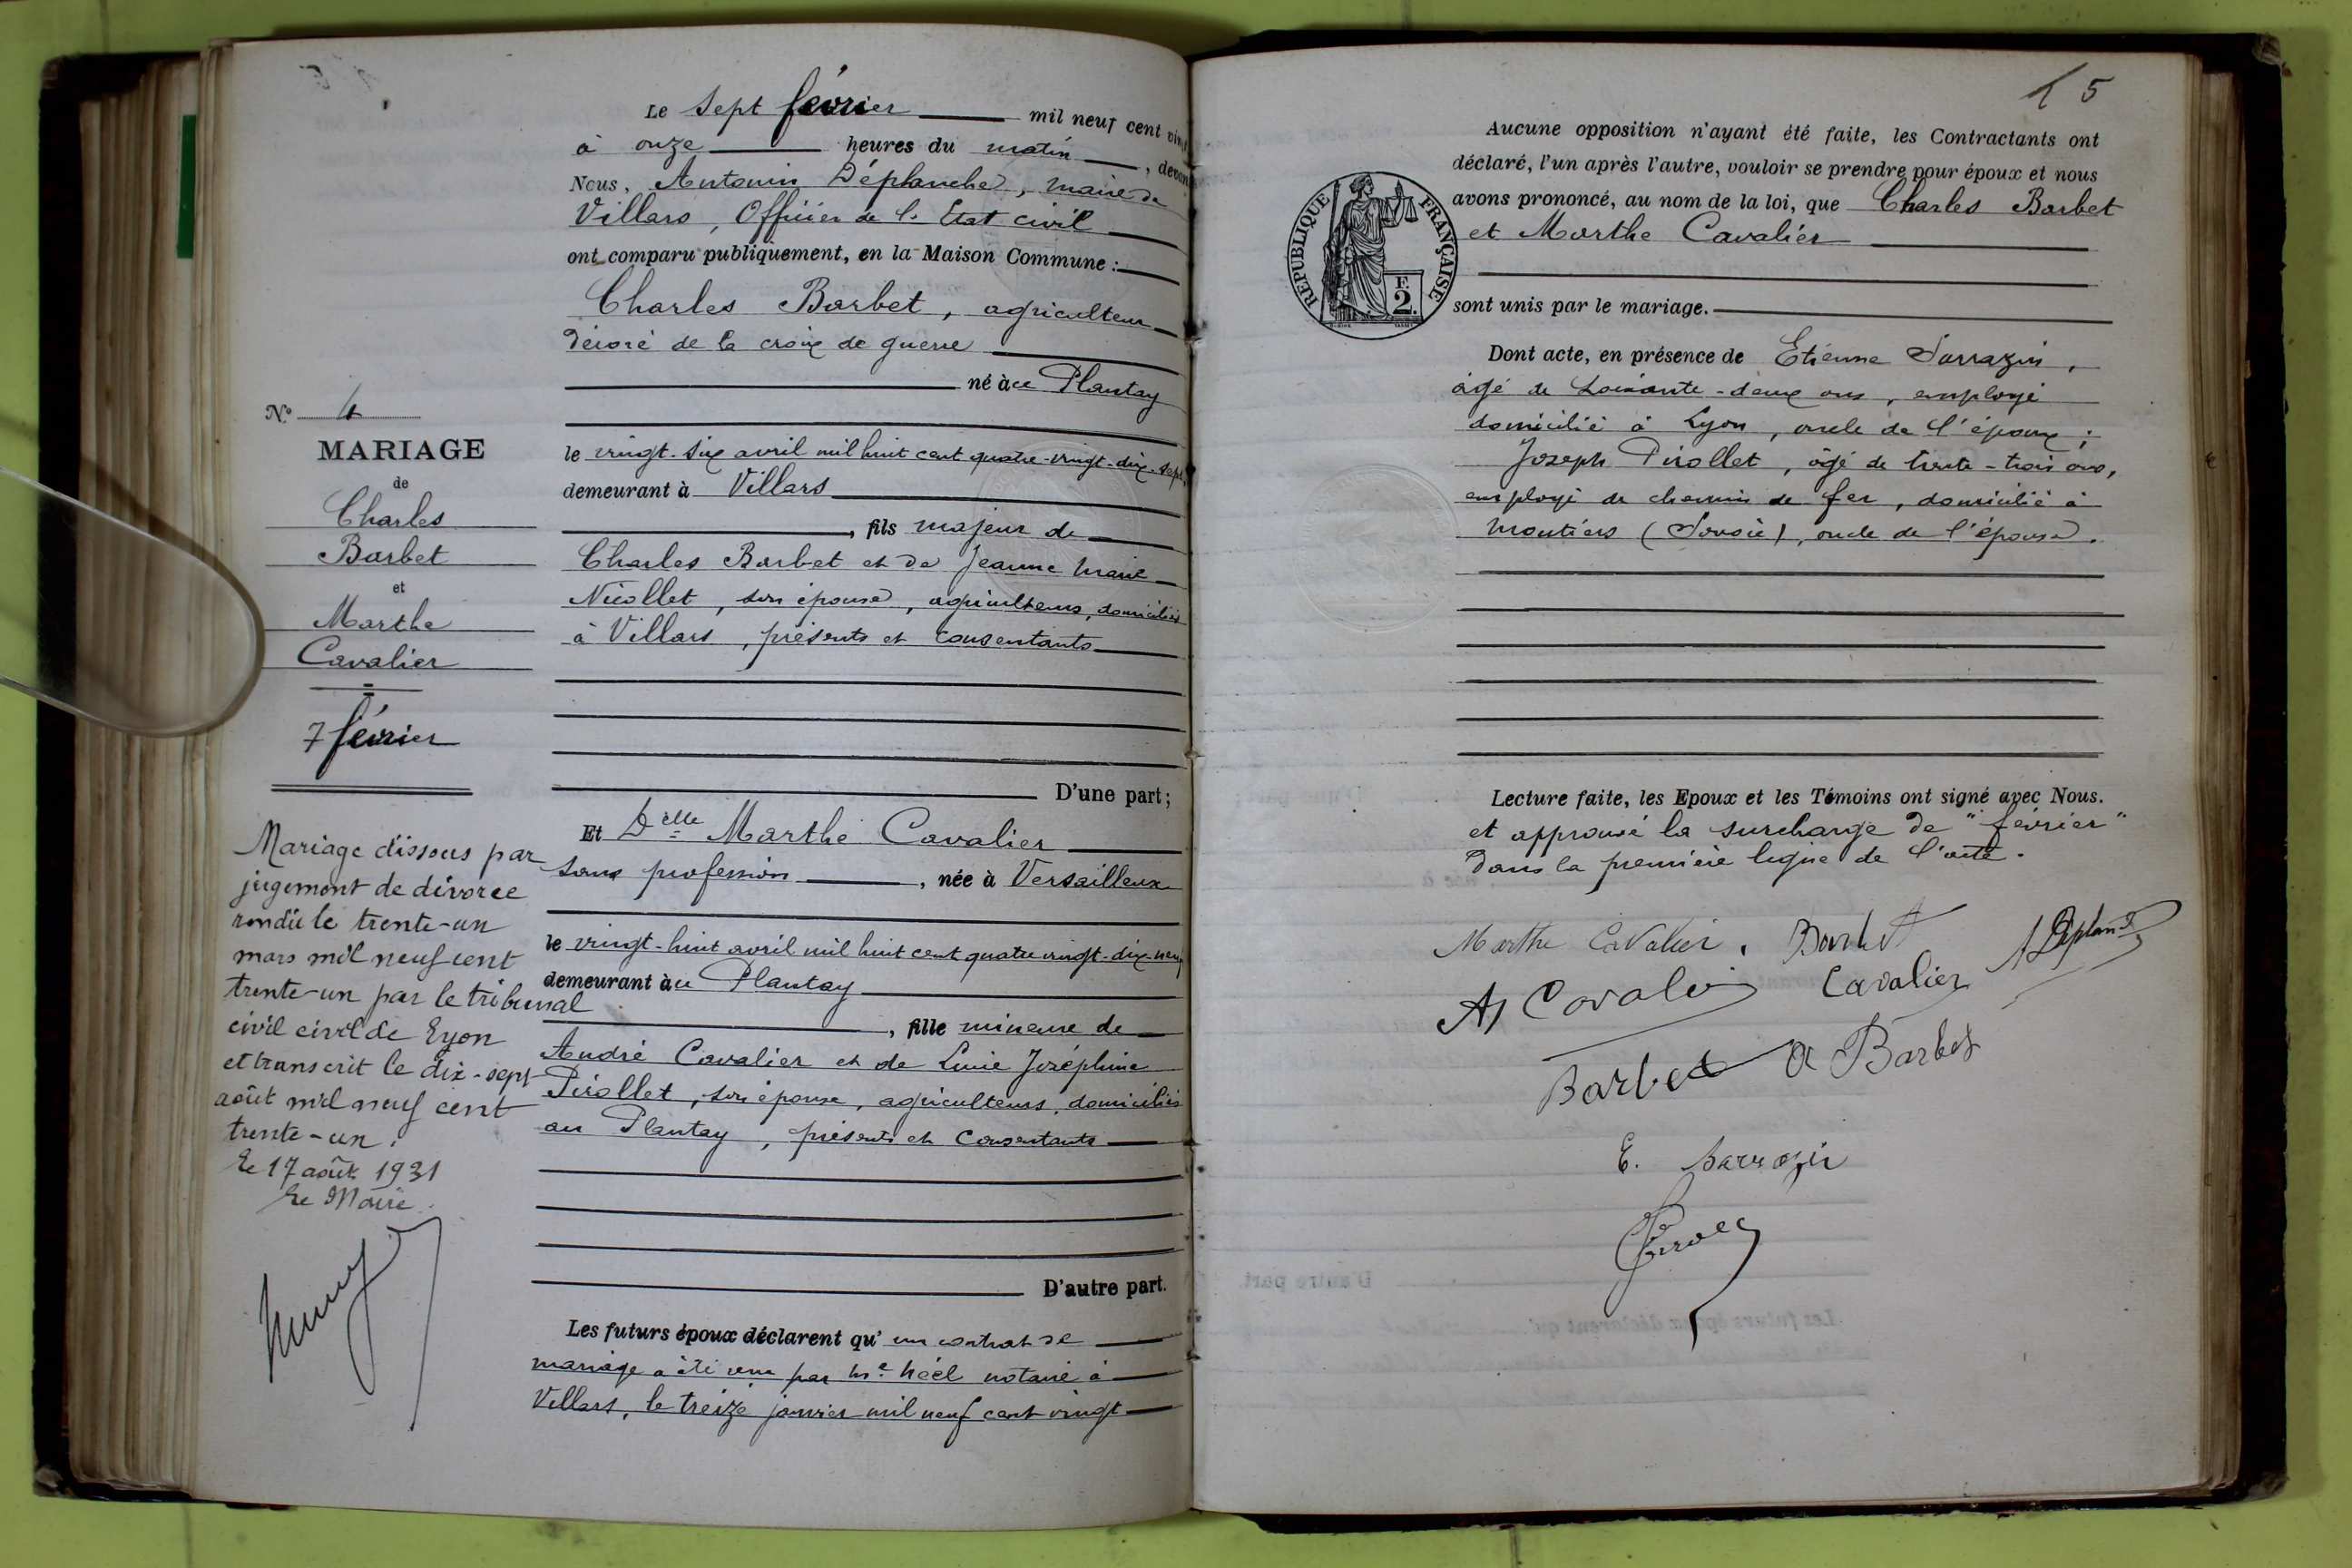 Le sept février mil neuf cent
à onze heures du matin, devant
Nous, Antonin Déplanche, maire de
Villars, Officier de l'Etat civil
ont comparu publiquement, en la Maison Commune :
Charles Barbet, agriculteur
décoré de la croix de guerre
né au Plantay
le vingt-six avril mil huit cent quatre-vingt-dix-sept,
demeurant à Villars
, fils majeur de
Charles Barbet et de Jeanne Marie
Nicollet, son épouse, agriculteurs, domiciliés
à Villars, présents et consentants
D'une part ;
Et Delle Marthe Cavalier
sans profession, née à Versailleux
le vingt-huit avril mil huit cent quatre vingt-dix-neuf
demeurant au Plantay
, fille mineure de
André Cavalier et de Joséphine
Pirollet, son épouse, agriculteurs, domiciliés
au Plantay, présents et consentants
D'autre part.
Les futurs époux déclarent qu'un contrat de
mariage a été reçu par Me Noël notaire à
Villars, le treize janvier mil neuf cent vingt
N° 4
MARIAGE
de
Charles
Barbet
et
Marthe
Cavalier
7 février
Mariage dissous par
jugement de divorce
rendu le trente-un
mars mil neuf cent
trente-un par le tribunal
civil civil de Lyon
et transcrit le dix-sept
août mil neuf cent
trente-un.
Le 17 août 1931
Le Maire.
5
Aucune opposition n'ayant été faite, les Contractants ont
déclaré, l'un après l'autre, vouloir se prendre pour époux et nous
avons prononcé, au nom de la loi, que Charles Barbet
et Marthe Cavalier
sont unis par le mariage.
RÉPUBLIQUE FRANÇAISE
F.
2.
Dont acte, en présence de Etienne Sarrazin,
âgé de soixante-deux ans, employé
domicilié à Lyon, oncle de l'époux ;
Joseph Pirollet, âgé de trente-trois ans,
employé de chemin de fer, domicilié à
Moutiers (Savoie), oncle de l'épouse.
Lecture faite, les Epoux et les Témoins ont signé avec Nous.
et approuvé la surcharge de "février"
dans la première ligne de l'acte.
Marthe Cavalier. Barbet A Déplanche
Cavalier Cavalier
Barbet Barbet
E. Sarrazin